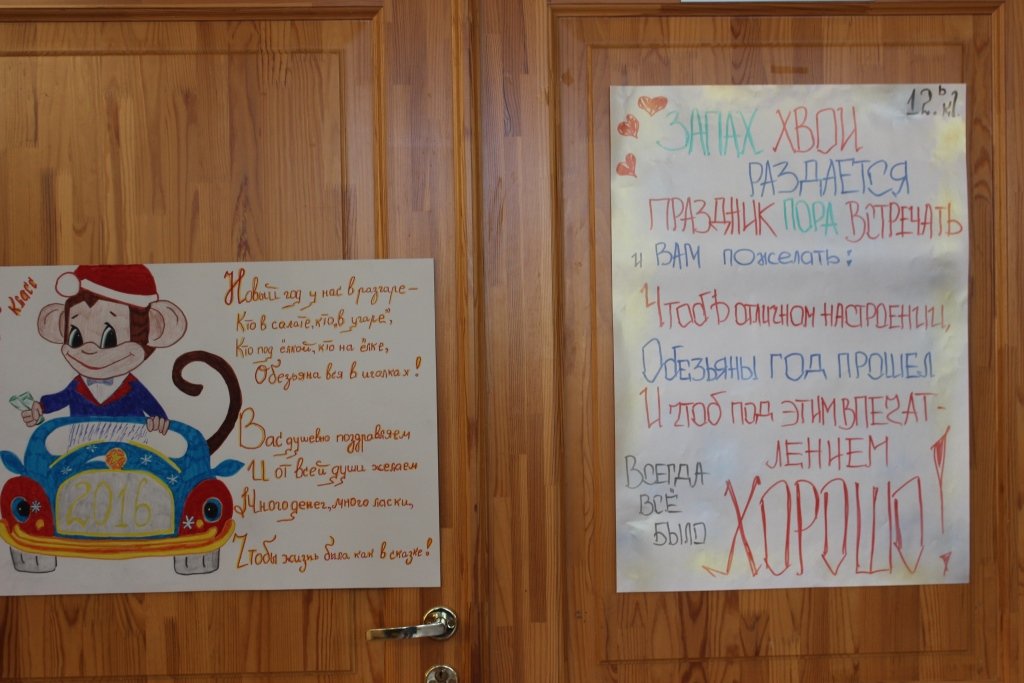 Класс
Новый год у нас в разгаре –
Кто в салате, кто „в угаре",
Кто под ёлкой, кто на ёлке,
Обезьяна вся в иголках!
Вас душевно поздравляем
И от всей души желаем
Много денег, много ласки,
Чтобы жизнь была как в сказке!
2016
12. ь кл.
ЗАПАХ ХВОИ
РАЗДАЕТСЯ
ПРАЗДНИК ПОРА ВСТРЕЧАТЬ
и ВАМ пожелать:
Чтоб в отличном настроении,
Обезьяны год прошел
И чтоб под этим впечат-
лением
Всегда
всё
было
ХОРОШО!